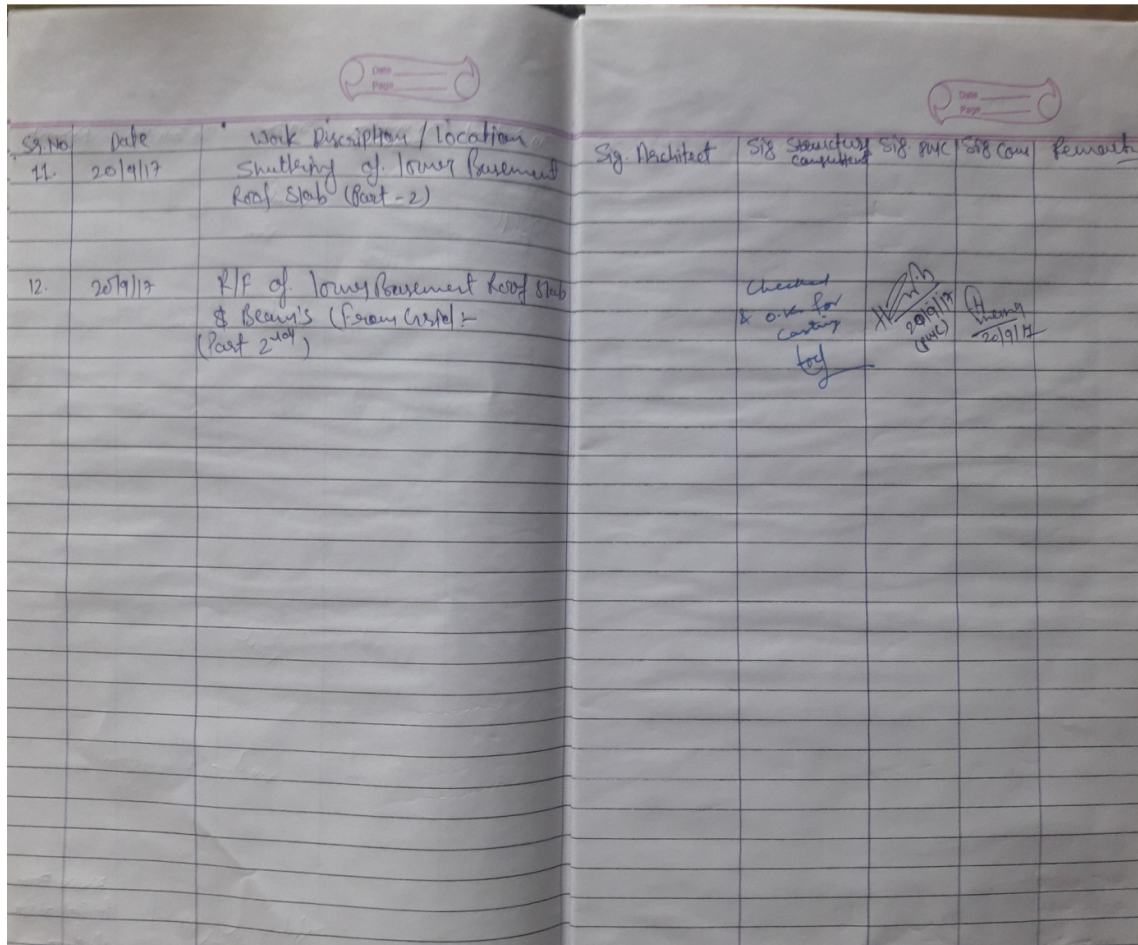 Date
Page
Date
Page
Sr.No Date Work Discription / Location Sig. Architect Sig Structure consultant Sig PMC Sig Con Remark
11. 20/9/17 Shuttring of lower Basement
Roof Slab (Part - 2)
12. 20/9/17 R/F of lower Basement Roof Slab
& Beam's (From Grid :-
(Part 2nd)
Checked
& O.K. for
Casting
20/9/17
(PMC)
20/9/17